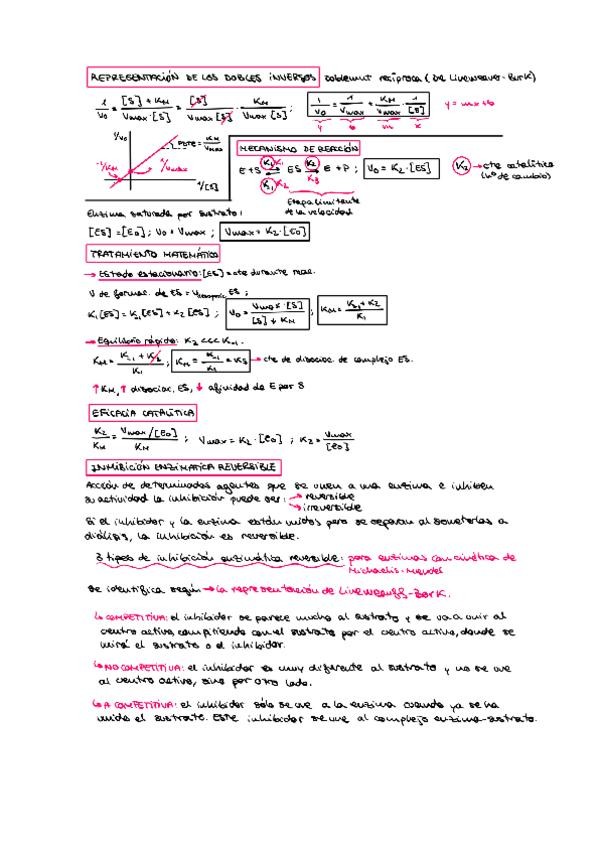 REPRESENTACIÓN DE LOS DOBLES INVERSOS doblemnt recíproca (De Lineweaver-Burk)
1/V₀ = [S] + KM / Vmax·[S] = [S] / Vmax [S] · KM / Vmax [S] ; 1/V₀ = 1/Vmax + KM/Vmax · 1/[S] y = mx+b
y b m x
1/V₀
PDTE = KM/VMAX
-1/KM
1/Vmax
1/[S]
MECANISMO DE REACCIÓN
E+S ES E+P ; V₀ = K₂·[ES] K₂ → cte catalítica
(nº de cambio)
Etapa limitante
de la velocidad
Enzima saturada por sustrato:
[ES] = [E₀] ; V₀ = Vmax ; Vmax = K₂·[E₀]
TRATAMIENTO MATEMÁTICO
→ Estado estacionario: [ES] = cte durante reac.
V de formac. de ES = V ES ;
K₁[ES] = K₋₁[ES] + K₂[ES] ; V₀ = Vmax·[S] / [S] + KM ; KM = K₋₁ + K₂ / K₁
→ Equilibrio rápido: K₂ <<< K₋₁.
KM = K₋₁ + K₂ / K₁ ; KM = K₋₁ / K₁ = KS → cte de disociac. de complejo ES.
↑ KM, ↑ disociac. ES, ↓ afinidad de E por S
EFICACIA CATALÍTICA
K₂/KM = Vmax/[E₀] / KM ; Vmax = K₂·[E₀] ; K₂ = Vmax/[E₀]
INHIBICIÓN ENZIMÁTICA REVERSIBLE
Acción de determinados agentes que se unen a una enzima e inhiben
su actividad la inhibición puede ser: → reversible
→ irreversible
Si el inhibidor y la enzima están unidos pero se separan al someterlas a
diálisis, la inhibición es reversible.
3 tipos de inhibición enzimática reversible: para enzimas con cinética de
Michaelis-Mendel
Se identifica según → la representación de Lineweaver-Bork.
↳ COMPETITIVA: el inhibidor se parece mucho al sustrato y se va a unir al
centro activo, compitiendo con el sustrato por el centro activo, donde se
unirá el sustrato o el inhibidor.
↳ NO COMPETITIVA: el inhibidor es muy diferente al sustrato y no se une
al centro activo, sino por otro lado.
↳ A COMPETITIVA: el inhibidor sólo se une a la enzima cuando ya se ha
unido el sustrato. Este inhibidor se une al complejo enzima-sustrato.